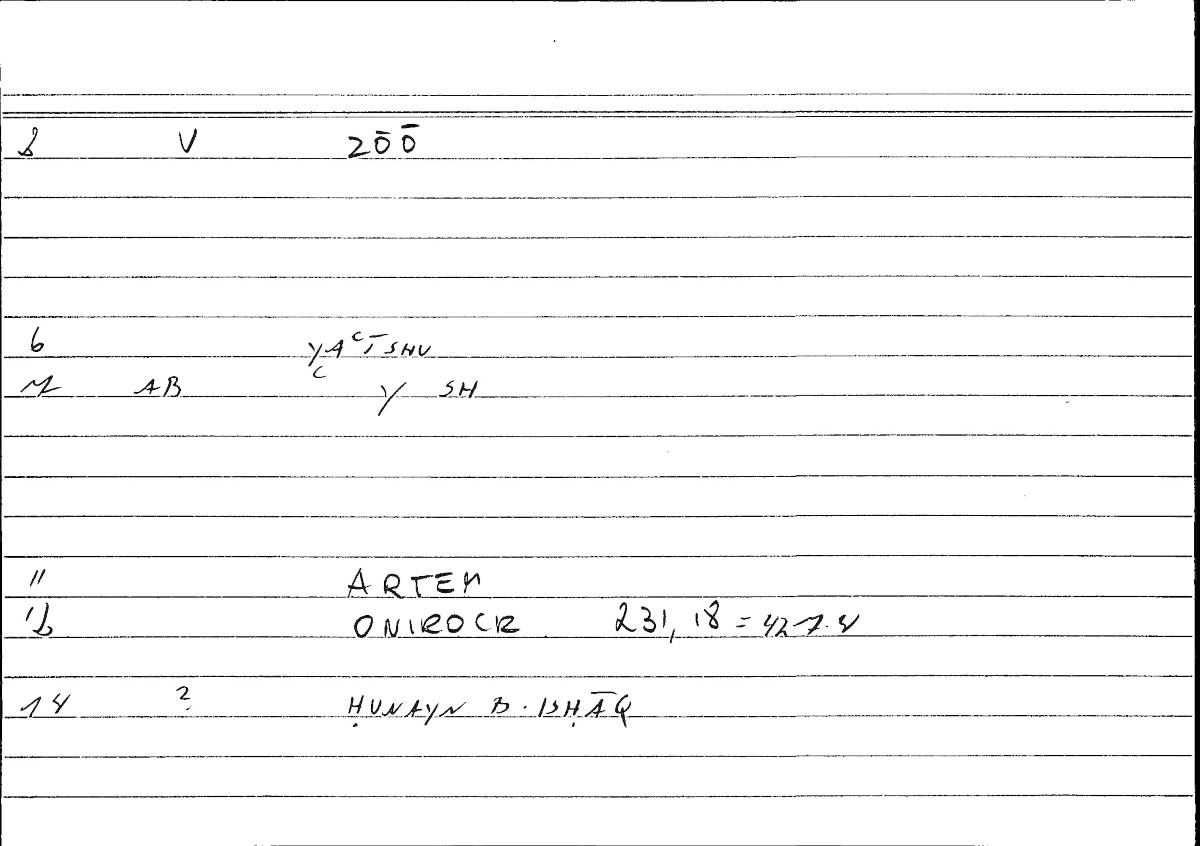 V 2ŌŌ
6 YAʿĪSHU
AB Y SH
11 ARTEM
12 ONIROCR 231, 18 = 427.8
14 ? ḤUNAYN B. ISḤĀQ